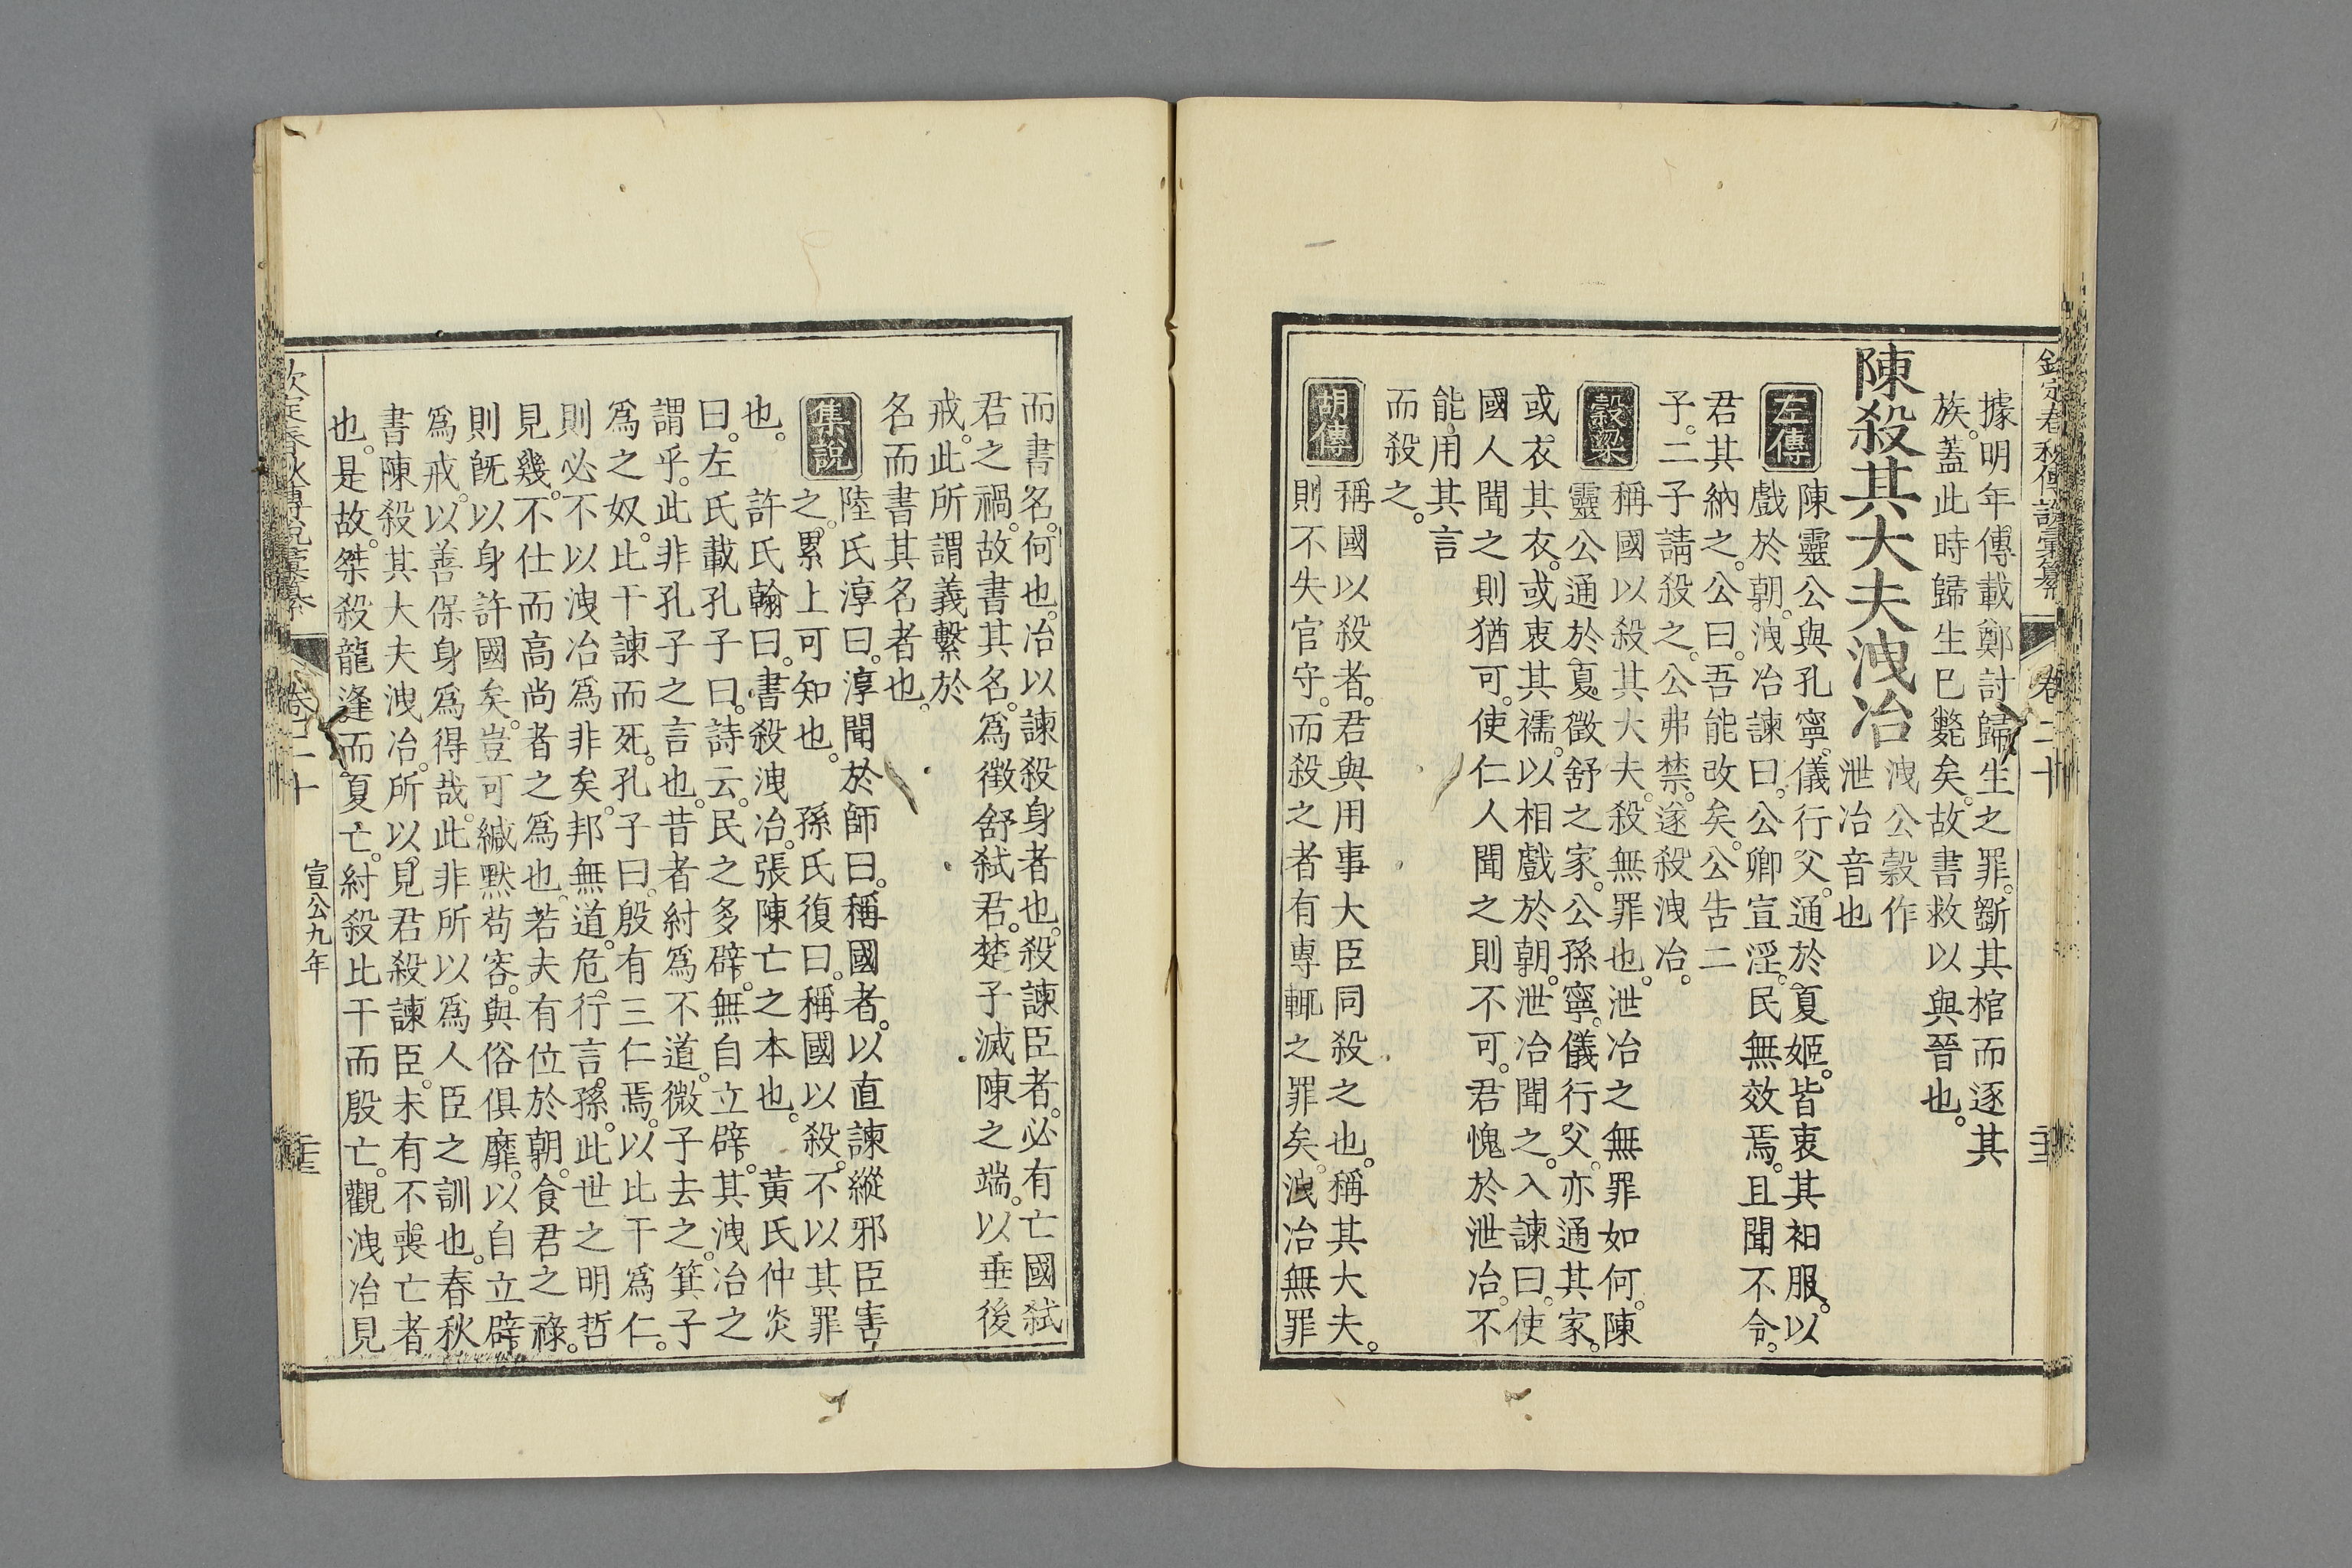 欽定春秋傳說彙纂
卷二十
據明年傳載鄭討歸生之罪。斵其棺而逐其
族。蓋此時歸生已斃矣。故書救以與晉也。
陳殺其大夫洩冶
洩公穀作
泄冶音也
左傳
陳靈公與孔寧。儀行父。通於夏姬。皆衷其衵服。以
戲於朝。洩冶諫曰。公卿宣淫。民無效焉。且聞不令。
君其納之。公曰。吾能改矣。公告二
子。二子請殺之。公弗禁。遂殺洩冶。
穀梁
稱國以殺其大夫。殺無罪也。泄冶之無罪如何。陳
靈公通於夏徵舒之家。公孫寧。儀行父。亦通其家。
或衣其衣。或衷其襦。以相戲於朝。泄冶聞之。入諫曰。使
國人聞之則猶可。使仁人聞之則不可。君愧於泄冶。不
能用其言
而殺之。
胡傳
稱國以殺者。君與用事大臣同殺之也。稱其大夫。
則不失官守。而殺之者有專輒之罪矣。洩冶無罪
而書名。何也。冶以諫殺身者也。殺諫臣者。必有亡國弑
君之禍。故書其名。爲徵舒弑君。楚子滅陳之端。以垂後
戒。此所謂義繫於
名而書其名者也。
集說
陸氏淳曰。淳聞於師曰。稱國者。以直諫縱邪臣害
之。累上可知也。 孫氏復曰。稱國以殺。不以其罪
也。 許氏翰曰。書殺洩冶。張陳亡之本也。 黃氏仲炎
曰。左氏載孔子曰。詩云。民之多辟。無自立辟。其洩冶之
謂乎。此非孔子之言也。昔者紂爲不道。微子去之。箕子
爲之奴。比干諫而死。孔子曰。殷有三仁焉。以比干爲仁。
則必不以洩冶爲非矣。邦無道。危行言孫。此世之明哲
見幾。不仕而高尚者之爲也。若夫有位於朝。食君之祿。
則旣以身許國矣。豈可緘默苟容。與俗俱靡。以自立辟
爲戒。以善保身爲得哉。此非所以爲人臣之訓也。春秋
書陳殺其大夫洩冶。所以見君殺諫臣。未有不喪亡者
也。是故桀殺龍逢而夏亡。紂殺比干而殷亡。觀洩冶見
欽定春秋傳說彙纂
卷二十
宣公九年